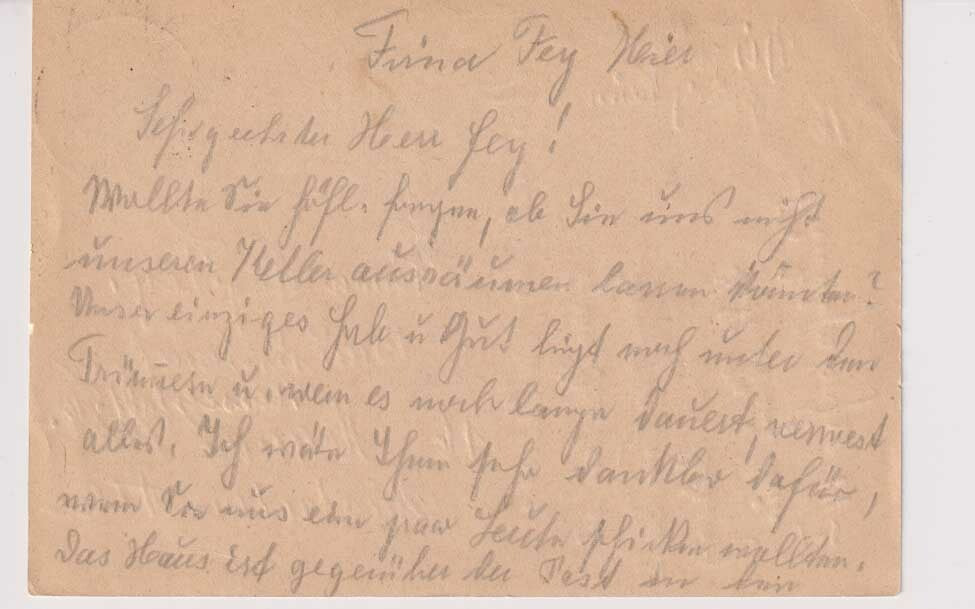 Firma Fey Hier
Sehr geehrter Herr Fey!
Wollte Sie höfl. fragen, ob Sie uns nicht
unseren Keller ausräumen lassen könnten?
Unser einziges Hab u Gut liegt noch unter den
Trümern u. wen es noch lange dauert, verwest
alles. Ich wäre Ihnen sehr dankbar dafür,
wenn Sie uns ein paar Leute schicken wollten.
Das Haus ist gegenüber der Post in